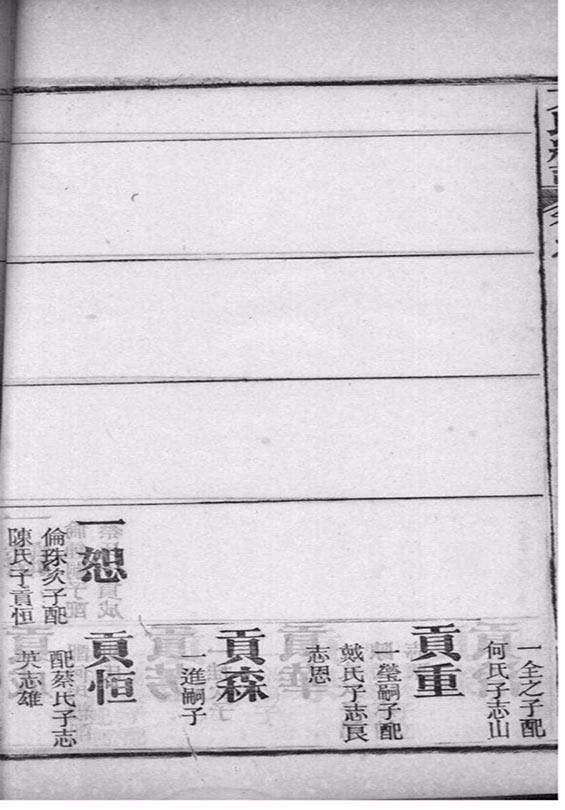 一全之子配
何氏子志山
貢重
一瑩嗣子配
戴氏子志良
志恩
貢森
一進嗣子
一恕
倫珠次子配
陳氏子貢恒
貢恒
配蔡氏子志
英志雄